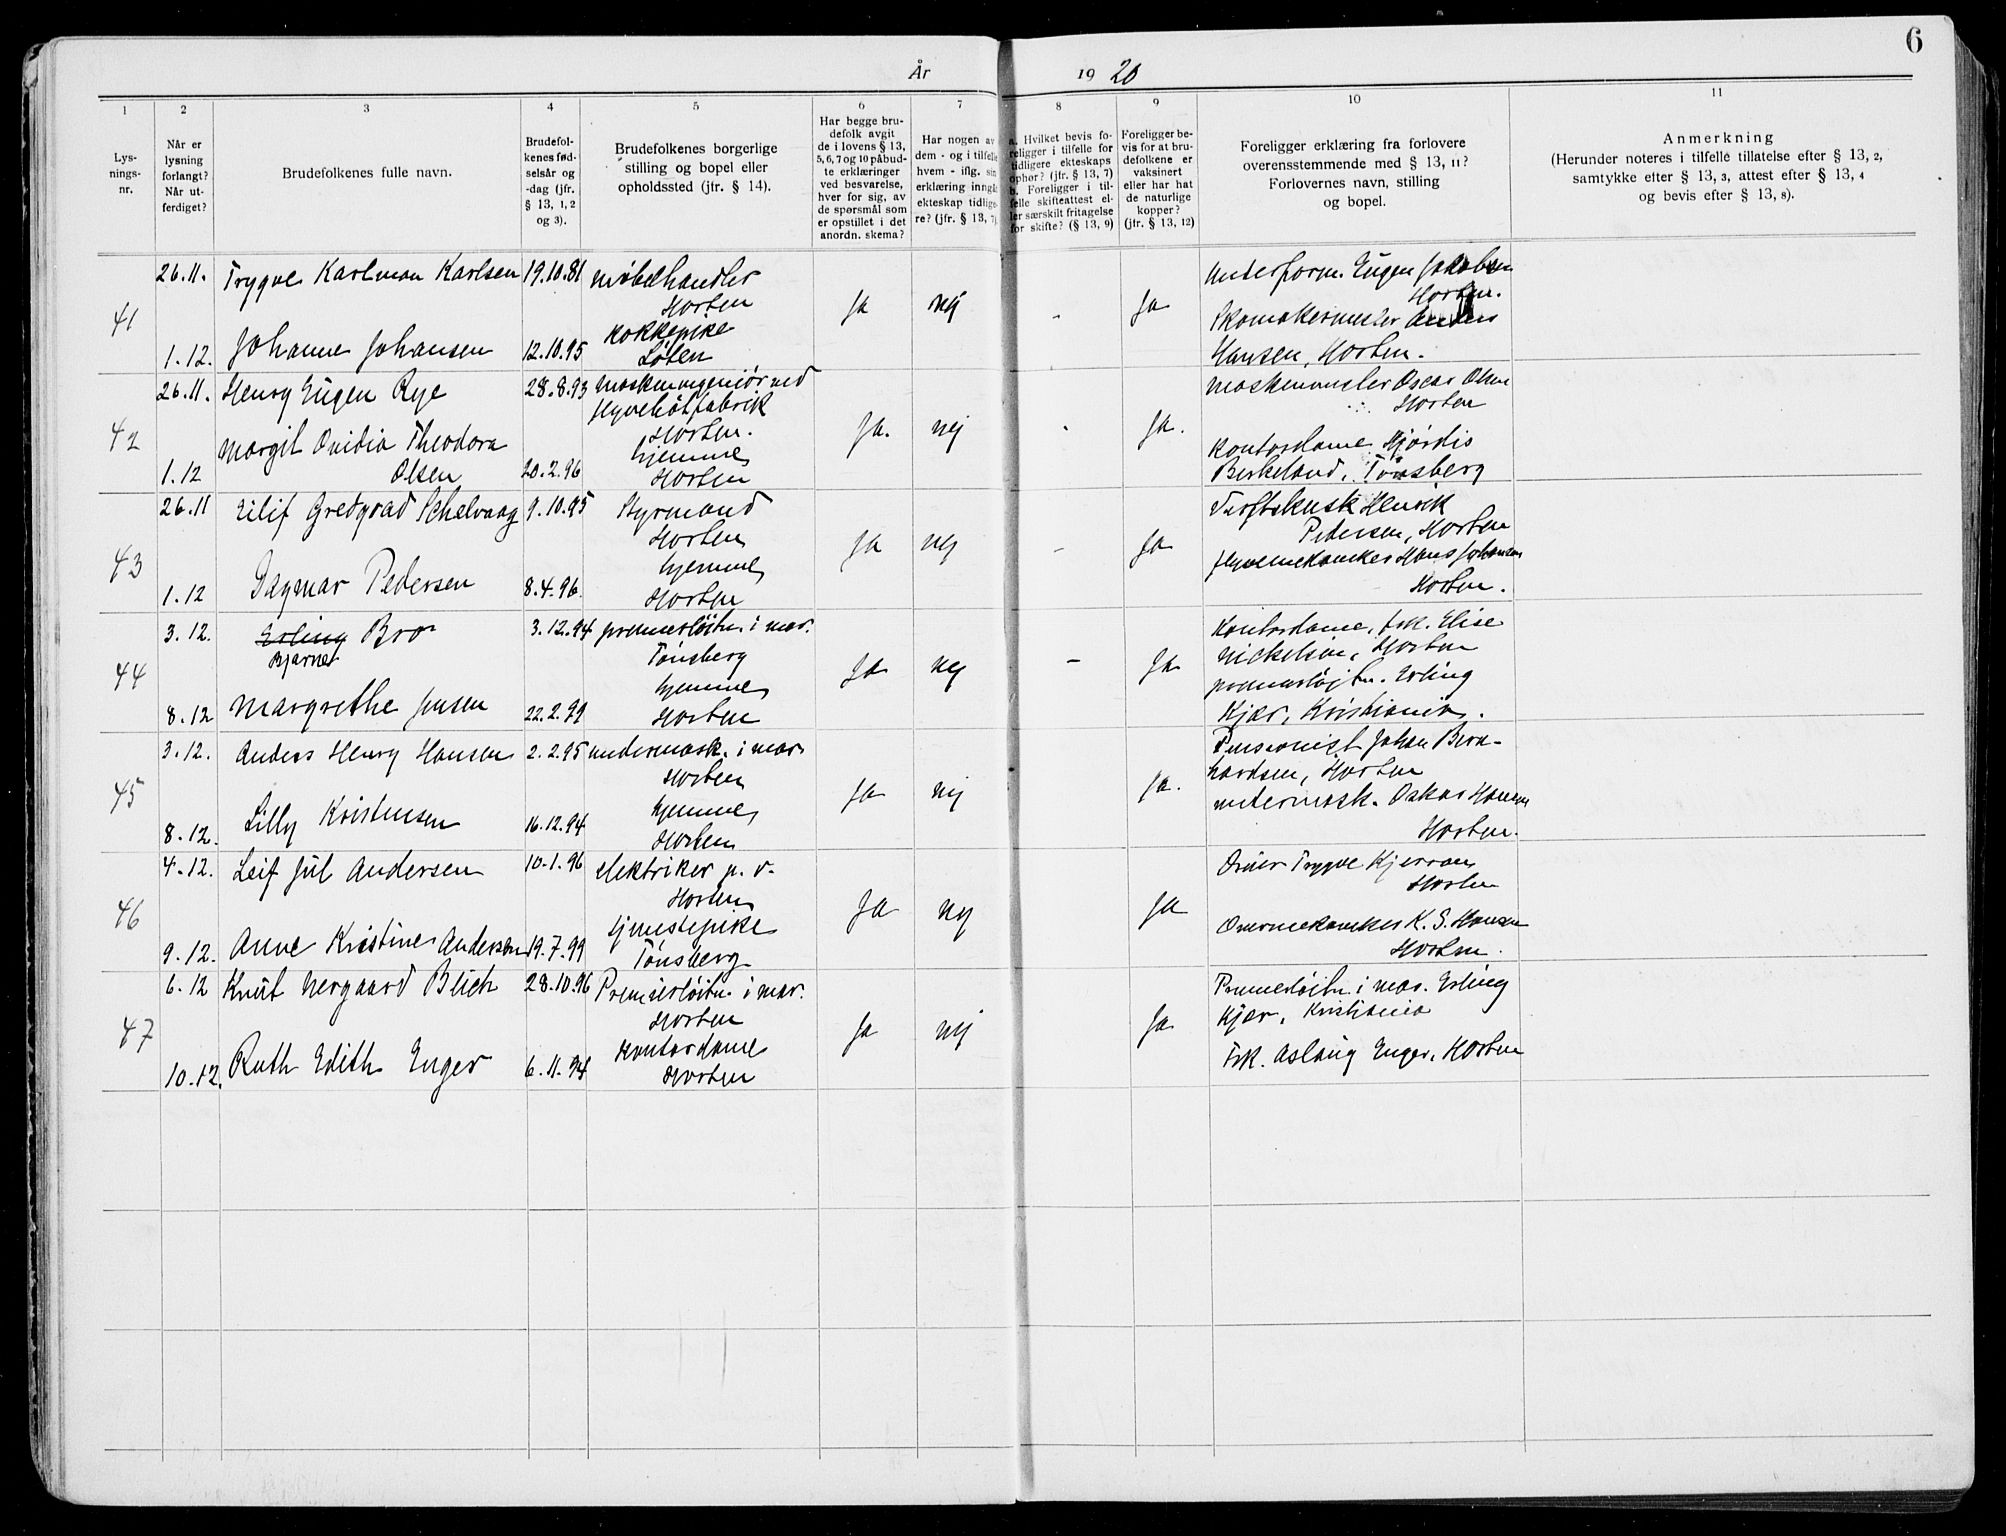 6
År 1920
1 2 3 4 5 6 7 8 9 10 11
Lys-
nings-
nr.
Når er
lysning
forlangt?
Når ut-
ferdiget?
Brudefolkenes fulle navn.
Brudefol-
kenes fød-
selsår og
-dag (jfr.
§ 13, 1, 2
og 3).
Brudefolkenes borgerlige
stilling og bopel eller
opholdssted (jfr. § 14).
Har begge bru-
defolk avgit
de i lovens § 13,
5, 6, 7 og 10 påbud-
te erklæringer
ved besvarelse,
hver for sig, av
de spørsmål som
er opstillet i det
anordn. skema?
Har nogen av
dem - og i tilfelle
hvem - iflg. sin
erklæring inngå
ekteskap tidlige-
re? (jfr. § 13, 7)
a. Hvilket bevis fo-
religger i tilfelle for
tidligere ekteskaps
ophør? (jfr. § 13, 7)
b. Foreligger i til-
felle skifteattest el-
ler særskilt fritagelse
for skifte? (§ 13, 9)
Foreligger be-
vis for at bru-
defolkene er
vaksinert
eller har hat
de naturlige
kopper?
(jfr. § 13, 12)
Foreligger erklæring fra forlovere
overensstemmende med § 13, 11?
Forlovernes navn, stilling
og bopel.
Anmerkning
(Herunder noteres i tilfelle tillatelse efter § 13, 2,
samtykke efter § 13, 3, attest efter § 13, 4
og bevis efter § 13, 8).
41
26.11. Trygve Karlman Karlsen 19.10.81 møbelhandler
Horten
1.12. Johanne Johansen 12.10.95 kokkepike
Løten
Ja nej - Ja
Underform. Eugen Jakobsen
Horten.
Skomakermester Anders
Hansen, Horten.
42
26.11. Henry Eugen Rye 28.8.93 maskiningeniør ved
flyvebåtfabrik
Horten.
1.12 Margit Ovidia Theodora
Olsen 20.2.96 hjemme
Horten
Ja. nej - Ja.
Maskinmester Oscar Olsen
Horten
Kontordame Hjørdis
Birkeland, Tönsberg
43
26.11 Eilif Gredqvad Schelvaag 9.10.95 Styrmand
Horten
1.12 Dagmar Pedersen 8.4.96. hjemme
Horten
Ja nej - Ja
Henrik
Pedersen, Horten
flyvemekaniker Hans Johansen
Horten.
44
3.12. Erling Bro 3.12.94 premierløitn. i mar.
Bjarne
Tönsberg
8.12 Margrethe Jensen 22.2.99 hjemme
Horten
Ja nej - Ja
Kontordame, frk. Elise
Mickelsen, Horten
premierløjtn. Erling
Kjær, Kristiania.
45
3.12. Anders Henry Hansen 2.2.95 undermask. i mar.
Horten
8.12. Lilly Kristensen 16.12.94 hjemme
Horten
Ja nej Ja.
Pensionist Johan Bern-
hardsen, Horten
undermask. Oskar Hansen
Horten.
46
4.12. Leif Jul Andersen 10.1.96 elektriker p. v.
Horten
9.12. Anne Kristine Andersen 19.7.99 tjenestepike
Tönsberg
Ja nej Ja
Trygve Kjerran
Horten
Overmekaniker K. S. Hansen
Horten.
47
6.12 Knut Nergaard Blich 28.10.96 Premierløitn. i mar.
Horten
10.12. Ruth Edith Enger 6.11.94 Kontordame
Horten
Ja nej Ja
Premierløitn. i mar. Erling
Kjær, Kristiania
Frk. Aslaug Enger, Horten